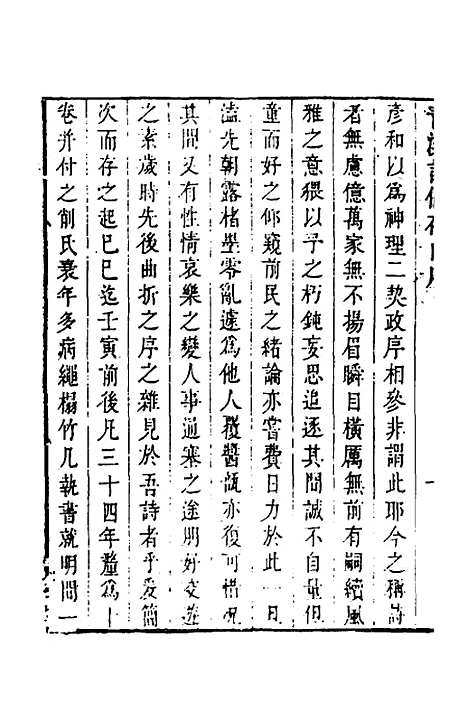 彥和以爲神理二契政序相參非謂此耶今之稱詩
者無慮億萬家無不揚眉瞬目橫厲無前有嗣續風
雅之意猥以予之朽鈍妄思追逐其間誠不自量但
童而好之仰窺前民之緒論亦嘗費日力於此一旦
溘先朝露楮墨零亂遽爲他人覆醬瓿亦復可惜况
其間又有性情哀樂之變人事通塞之途朋好交遊
之素歲時先後曲折之序之雜見於吾詩者乎爰簡
次而存之起己巳迄壬寅前後凡三十四年釐爲十
卷并付之削氏衰年多病繩榻竹几執書就明間一